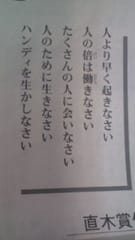 人より早く起きなさい
人の倍は働きなさい
たくさんの人に会いなさい
人のために生きなさい
ハンディを生かしなさい
直木賞